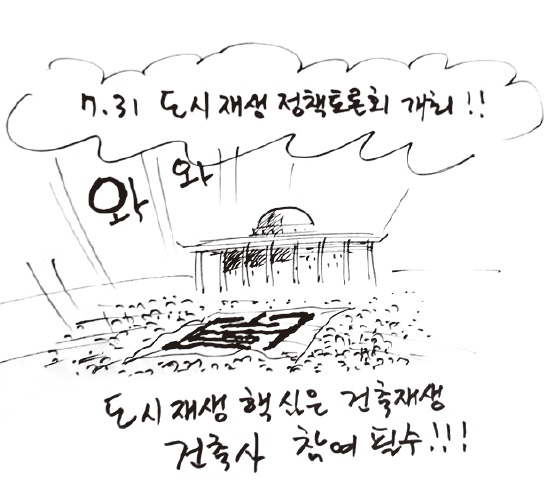 7.31 도시재생 정책토론회 개최!!
와 와
도시재생 핵심은 건축재생
건축사 참여 필수!!!